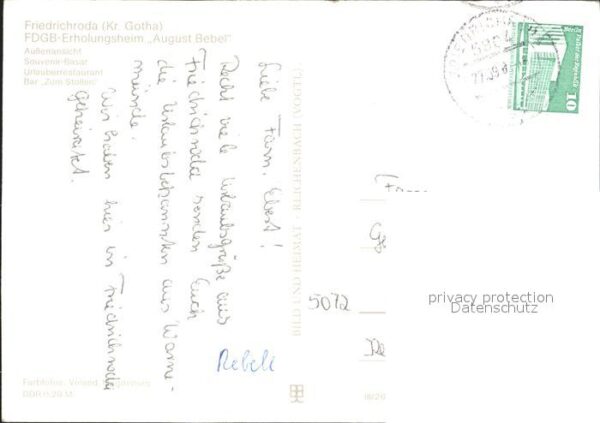 Friedrichroda (Kr. Gotha)
FDGB-Erholungsheim „August Bebel"
Außenansicht
Souvenir-Basar
Urlauberrestaurant
Bar „Zum Stollen"
Liebe Fam. Ebert!
Recht viele Urlaubsgrüße aus
Friedrichroda senden Euch
die Urlaubsbekannten aus Warne-
münde.
Wir haben hier in Friedrichroda
geheiratet.
Rebell
Farbfotos:
DDR 0,20 M
BILD UND HEIMAT · REICHENBACH (VOGTL)
5072
III/26
10
privacy protection
Datenschutz